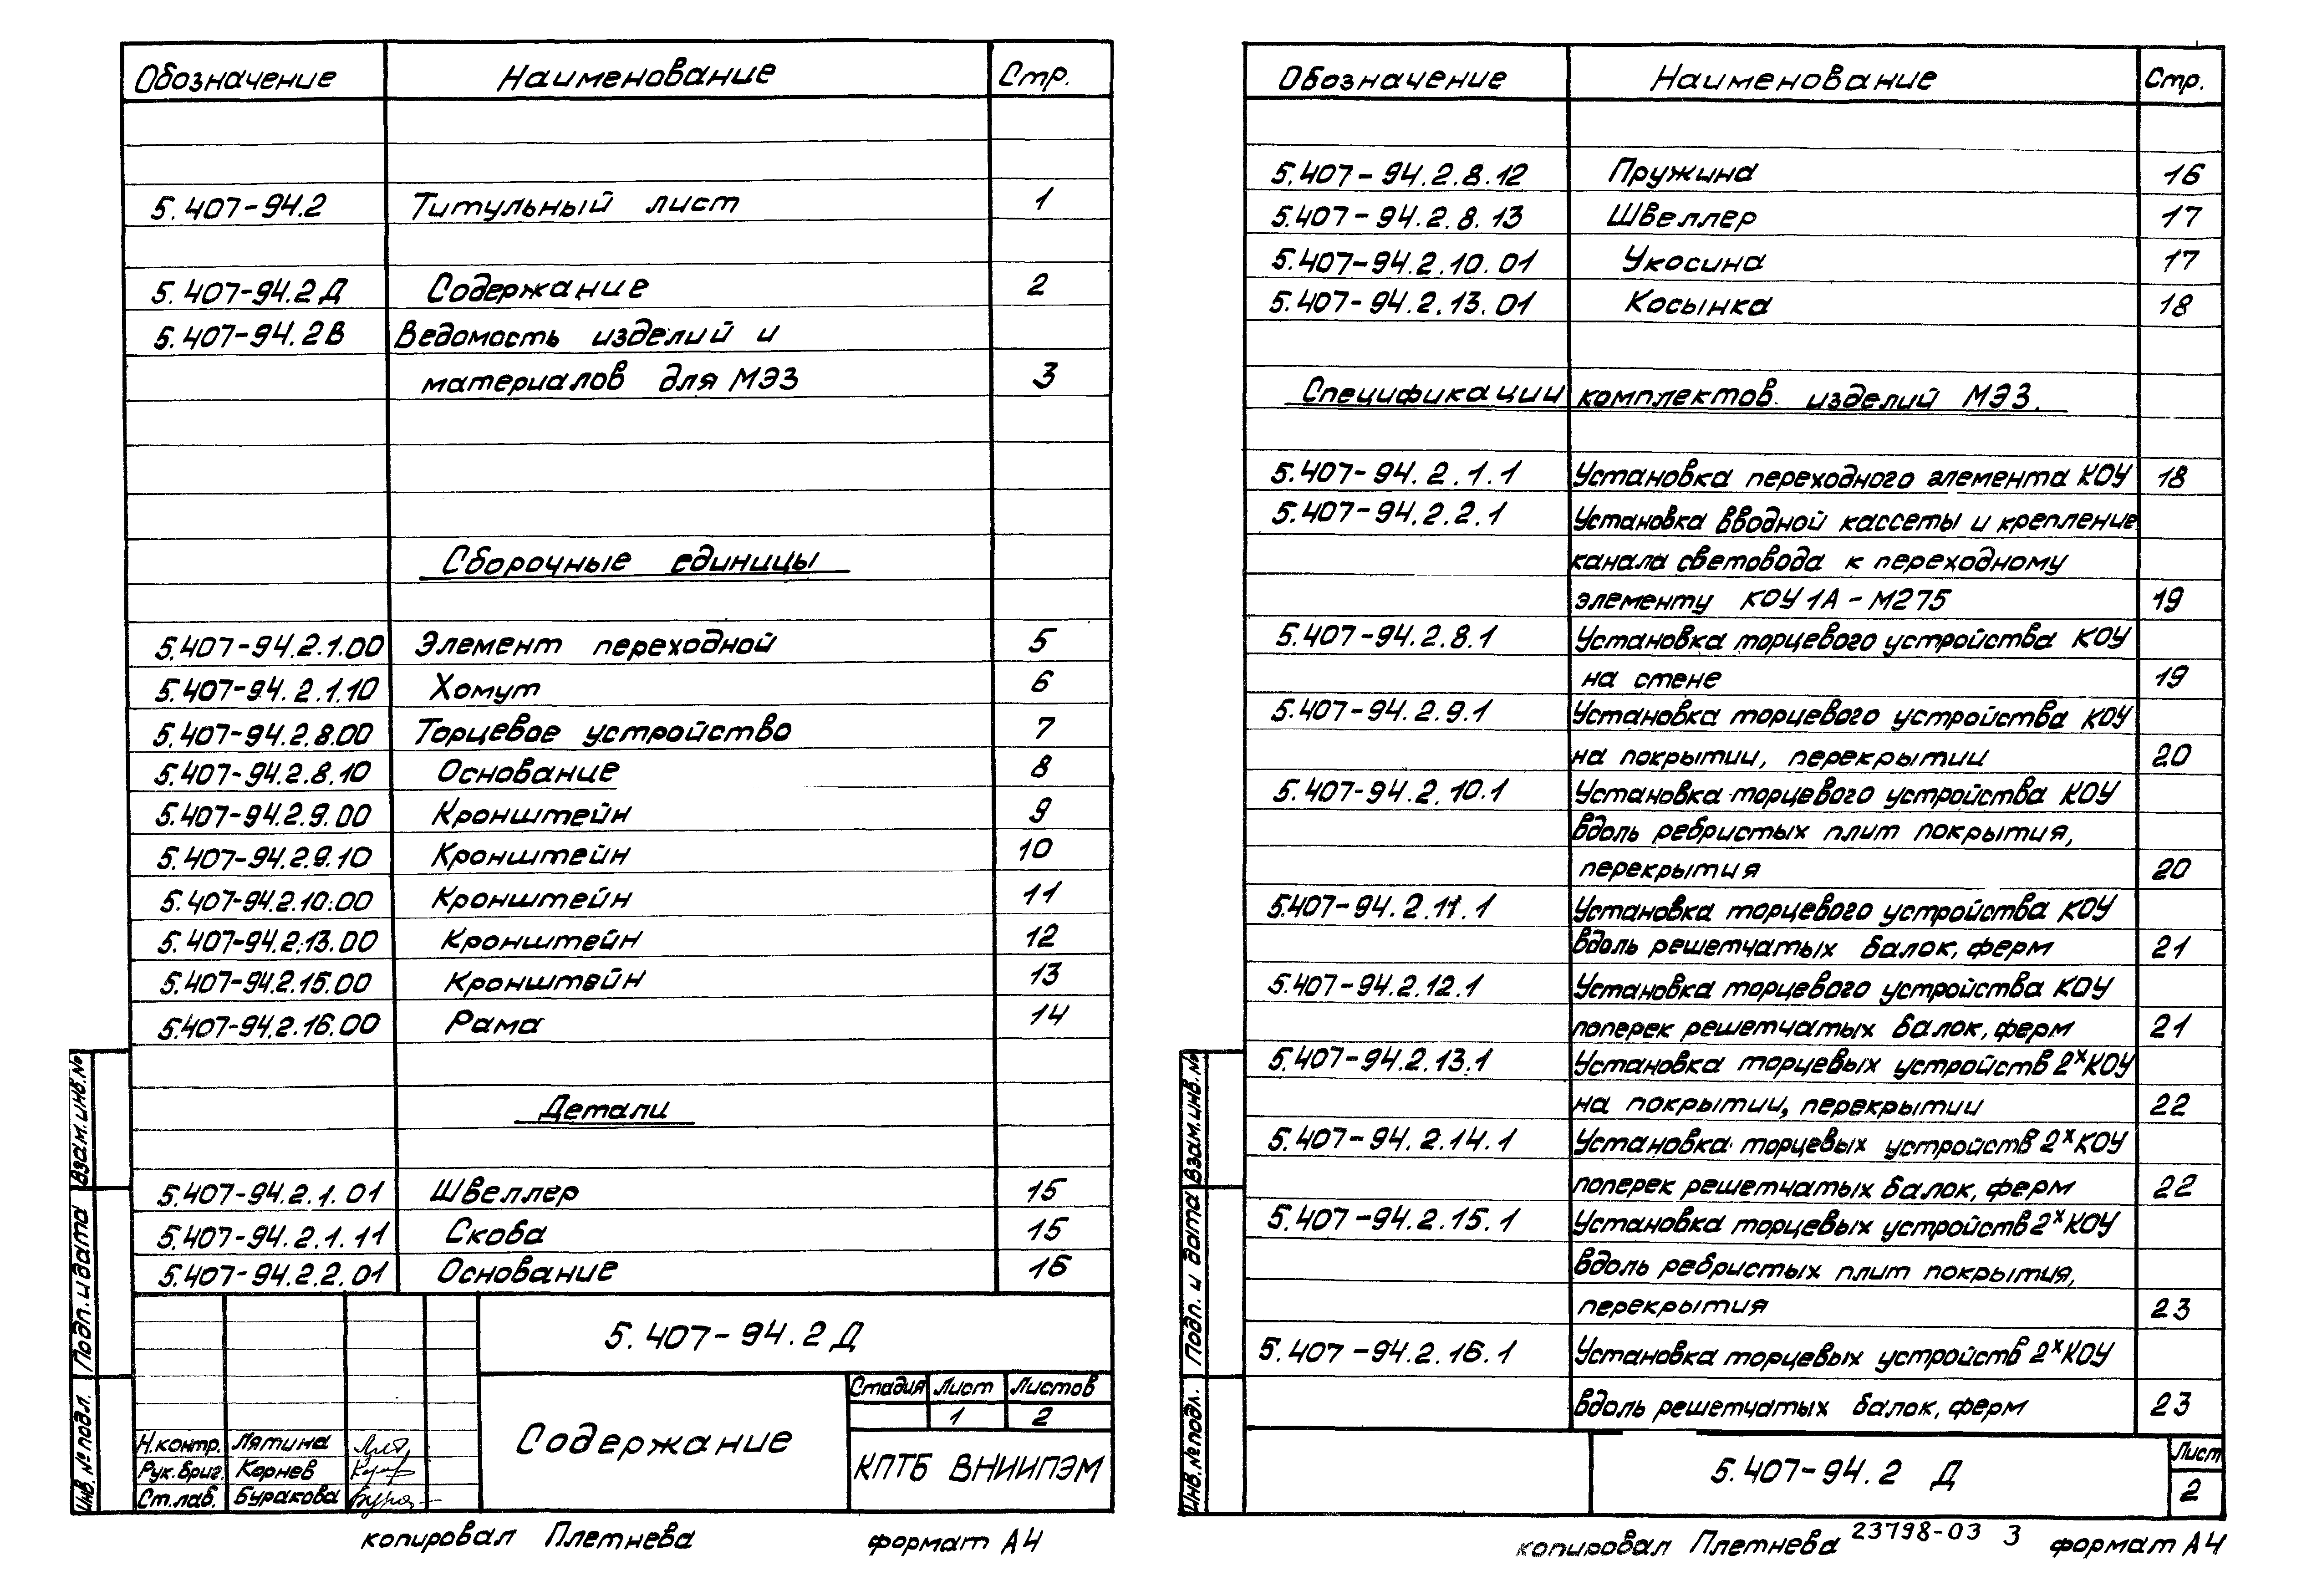 Обозначение Наименование Стр.
5.407-94.2 Титульный лист 1
5.407-94.2Д Содержание 2
5.407-94.2В Ведомость изделий и
материалов для МЭЗ 3
Сборочные единицы
5.407-94.2.1.00 Элемент переходной 5
5.407-94.2.1.10 Хомут 6
5.407-94.2.8.00 Торцевое устройство 7
5.407-94.2.8.10 Основание 8
5.407-94.2.9.00 Кронштейн 9
5.407-94.2.9.10 Кронштейн 10
5.407-94.2.10.00 Кронштейн 11
5.407-94.2.13.00 Кронштейн 12
5.407-94.2.15.00 Кронштейн 13
5.407-94.2.16.00 Рама 14
Детали
5.407-94.2.1.01 Швеллер 15
5.407-94.2.1.11 Скоба 15
5.407-94.2.2.01 Основание 16
5.407-94.2Д
Стадия Лист Листов
1 2
Содержание
КПТБ ВНИИПЭМ
Н.контр. Лятина
Рук.бриг. Корнев
Ст.лаб. Буракова
Взам.инв.№
Подп. и дата
Инв.№ подл.
копировал Плетнева формат А4
Обозначение Наименование Стр.
5.407-94.2.8.12 Пружина 16
5.407-94.2.8.13 Швеллер 17
5.407-94.2.10.01 Укосина 17
5.407-94.2.13.01 Косынка 18
Спецификации комплектов изделий МЭЗ.
5.407-94.2.1.1 Установка переходного элемента КОУ 18
5.407-94.2.2.1 Установка вводной кассеты и крепление
канала световода к переходному
элементу КОУ1А-М275 19
5.407-94.2.8.1 Установка торцевого устройства КОУ
на стене 19
5.407-94.2.9.1 Установка торцевого устройства КОУ
на покрытии, перекрытии 20
5.407-94.2.10.1 Установка торцевого устройства КОУ
вдоль ребристых плит покрытия,
перекрытия 20
5.407-94.2.11.1 Установка торцевого устройства КОУ
вдоль решетчатых балок, ферм 21
5.407-94.2.12.1 Установка торцевого устройства КОУ
поперек решетчатых балок, ферм 21
5.407-94.2.13.1 Установка торцевых устройств 2ˣКОУ
на покрытии, перекрытии 22
5.407-94.2.14.1 Установка торцевых устройств 2ˣКОУ
поперек решетчатых балок, ферм 22
5.407-94.2.15.1 Установка торцевых устройств 2ˣКОУ
вдоль ребристых плит покрытия,
перекрытия 23
5.407-94.2.16.1 Установка торцевых устройств 2ˣКОУ
вдоль решетчатых балок, ферм 23
5.407-94.2 Д
Лист
2
Взам.инв.№
Подп. и дата
Инв.№ подл.
копировал Плетнева 23798-03 3 формат А4